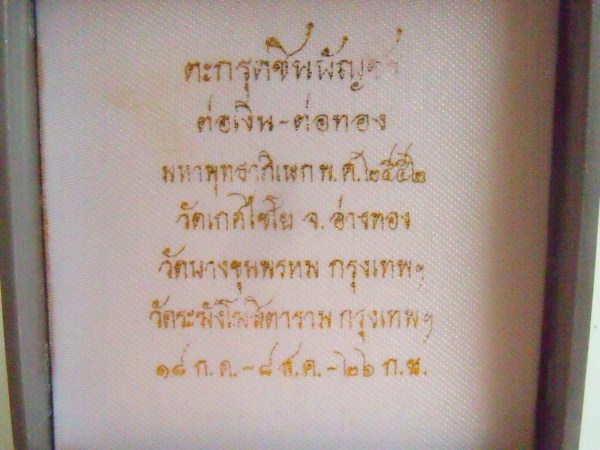 ตะกรุดชินบัญชร
ต่อเงิน-ต่อทอง
มหาพุทธาภิเษก พ.ศ.๒๕๕๒
วัดเกศไชโย จ.อ่างทอง
วัดบางขุนพรหม กรุงเทพฯ
วัดระฆังโฆสิตาราม กรุงเทพฯ
๑๘ ก.ค.-๘ ส.ค.-๒๖ ก.ย.